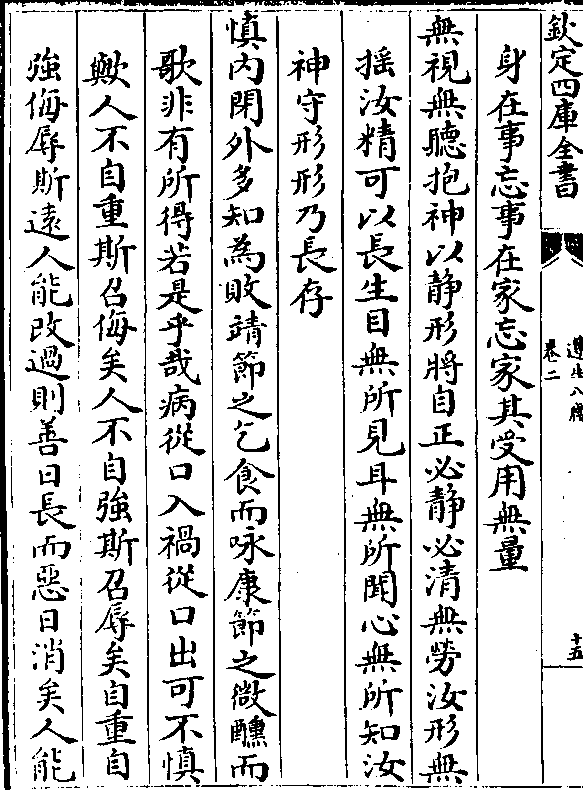 欽定四庫全書
遵生八牋
卷二
十五
身在事忘事在家忘家其受用無量
無視無聽抱神以静形將自正必静必清無勞汝形無
揺汝精可以長生目無所見耳無所聞心無所知汝
神守形形乃長存
慎内閉外多知為敗靖節之乞食而咏康節之微醺而
歌非有所得若是乎哉病從口入禍從口出可不慎
歟人不自重斯召侮矣人不自強斯召辱矣自重自
強侮辱斯遠人能改過則善日長而惡日消矣人能